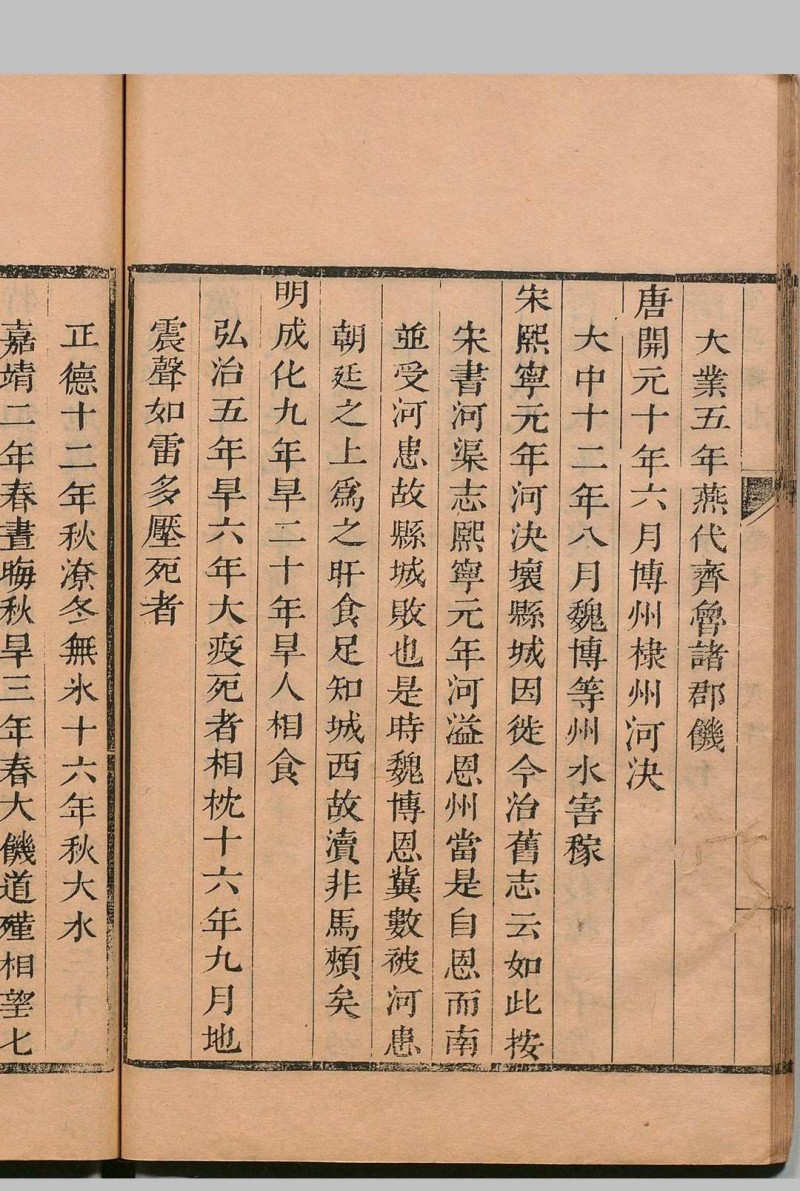 大業五年燕代齊魯諸郡饑
唐開元十年六月博州棣州河決
大中十二年八月魏博等州水害稼
宋熙寧元年河決壞縣城因徙今治舊志云如此按
宋書河渠志熙寧元年河溢恩州當是自恩而南
並受河患故縣城敗也是時魏博恩冀數被河患
朝廷之上爲之旰食足知城西故瀆非馬頰矣
明成化九年旱二十年旱人相食
弘治五年旱六年大疫死者相枕十六年九月地
震聲如雷多壓死者
正德十二年秋潦冬無氷十六年秋大水
嘉靖二年春晝晦秋旱三年春大饑道殣相望七